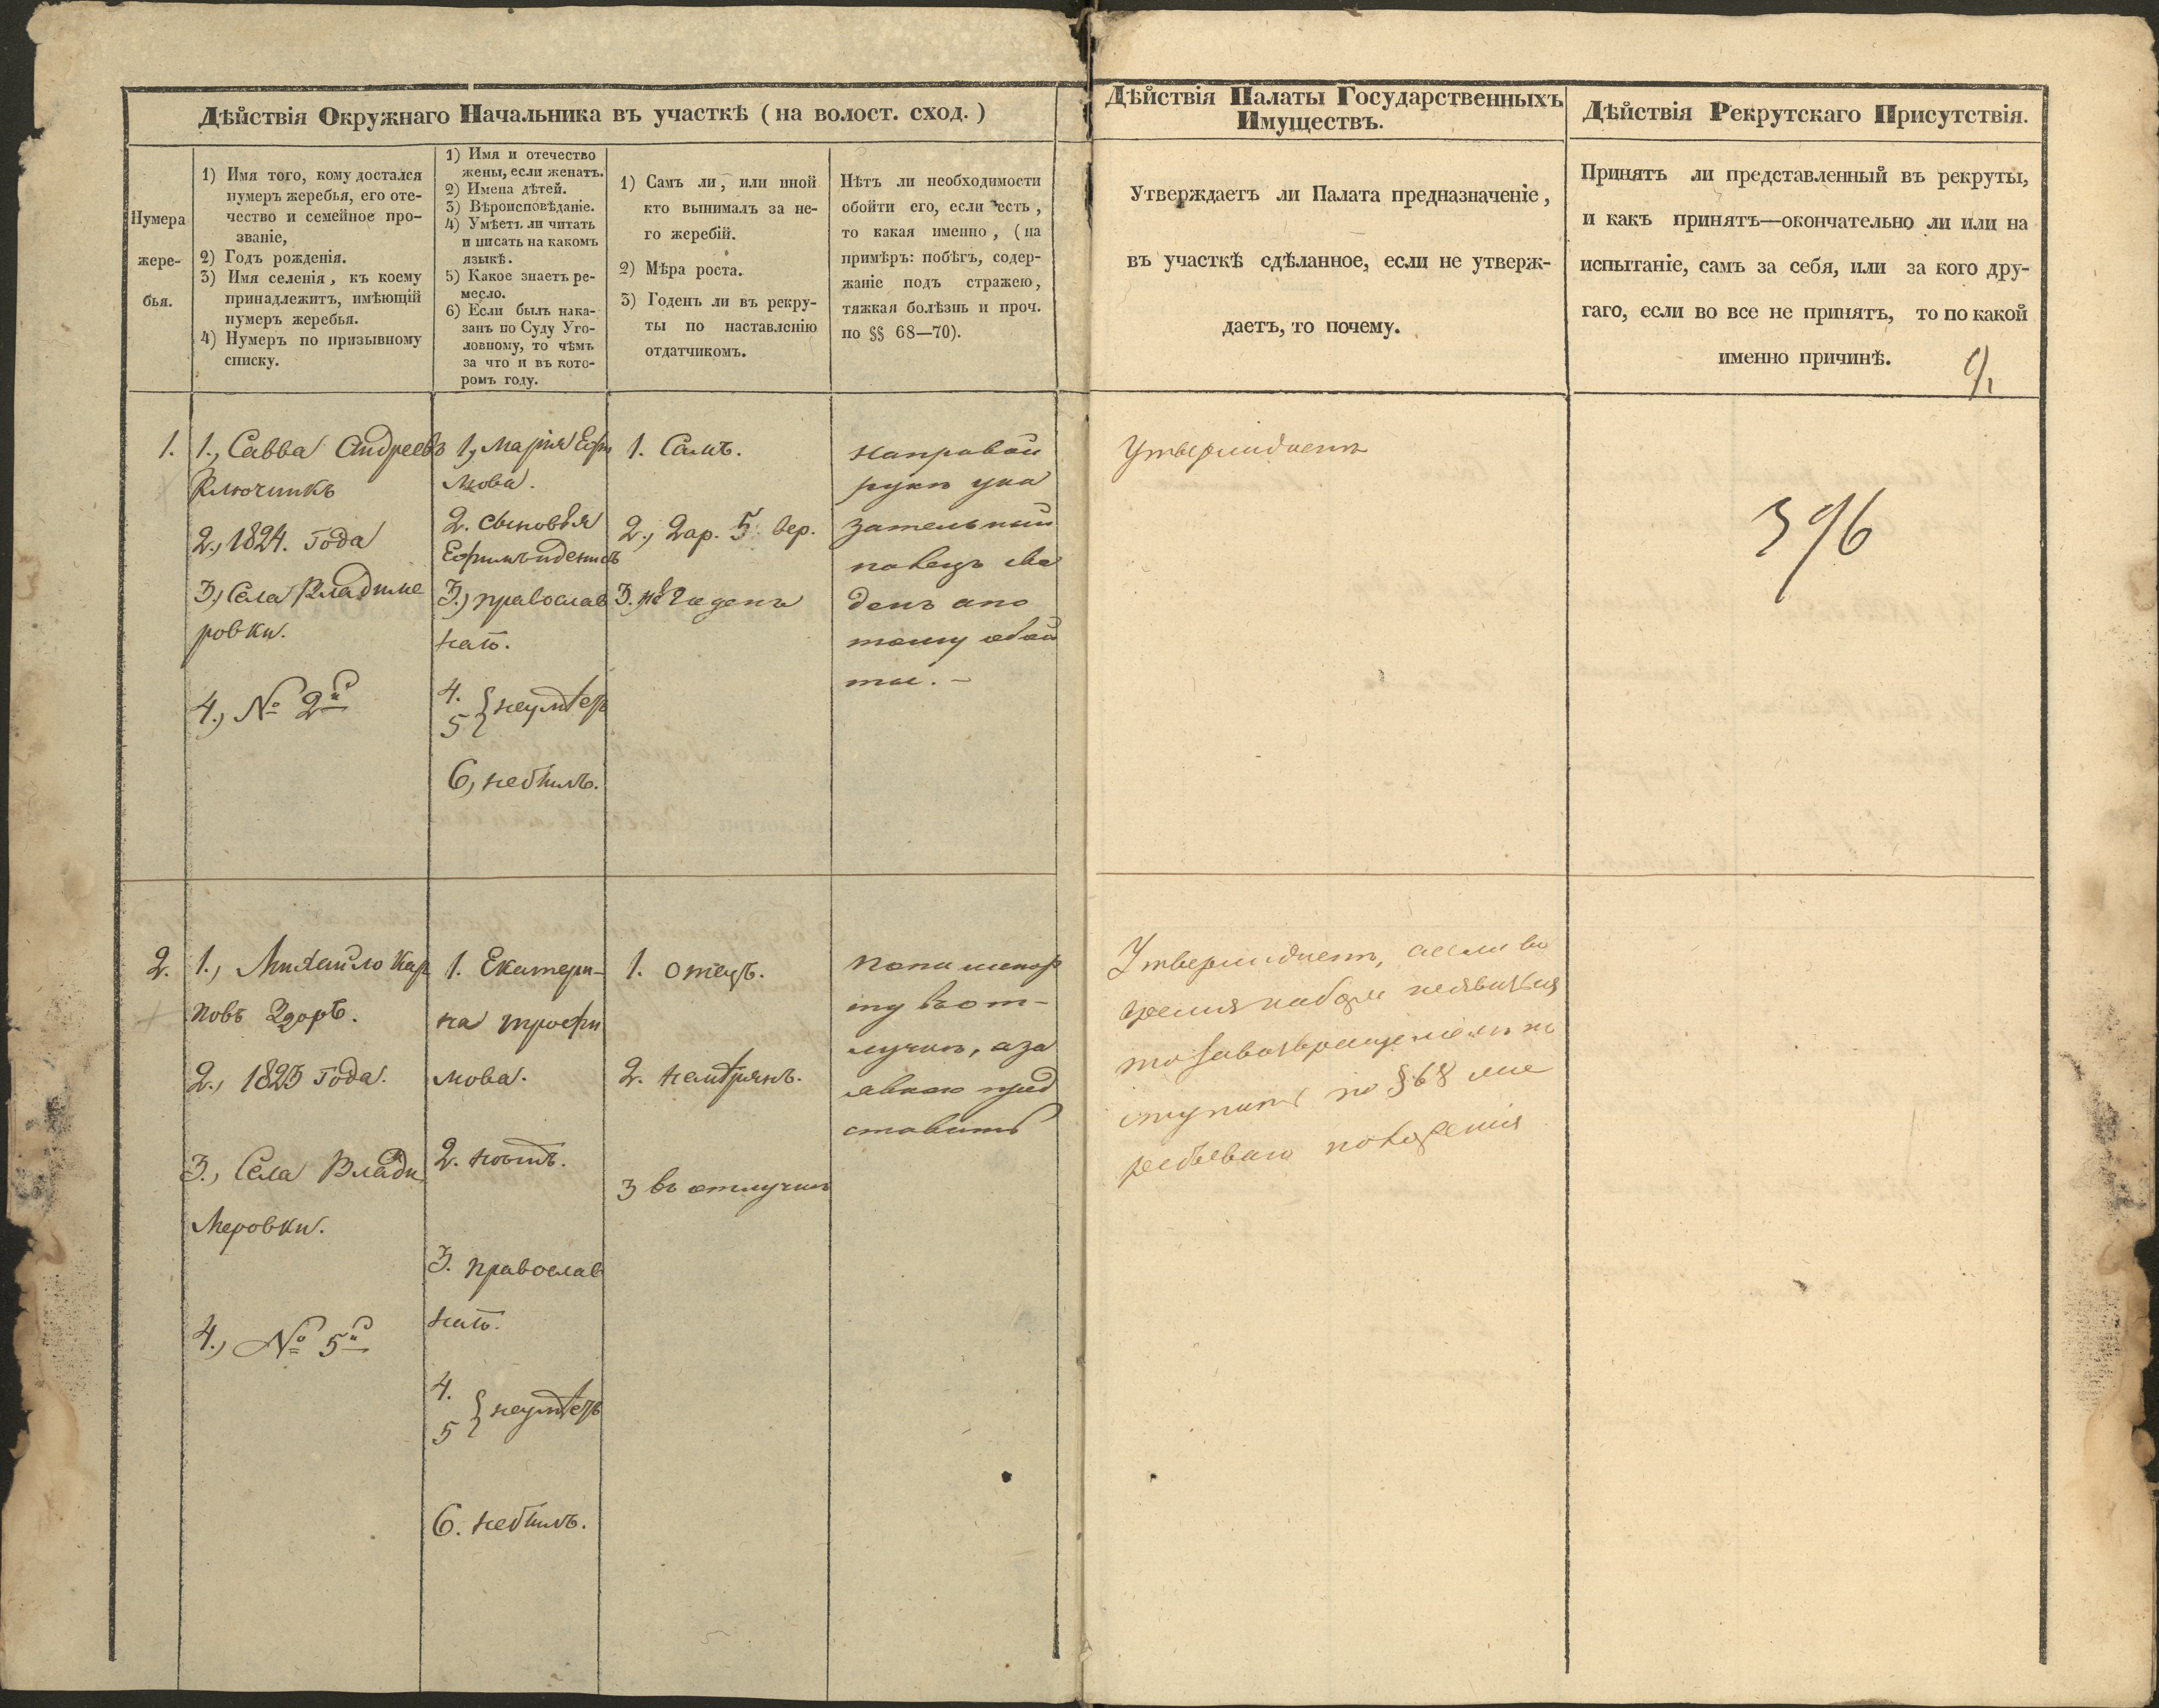 Дѣйствія Окружнаго Начальника въ участкѣ (на волост. сход.)
Нумера
жере-
бья.
1) Имя того, кому достался
нумеръ жеребья, его оте-
чество и семейное про-
званіе,
2) Годъ рожденія.
3) Имя селенія, къ коему
принадлежитъ, имѣющій
нумеръ жеребья.
4) Нумеръ по призывному
списку.
1) Имя и отечество
жены, если женатъ.
2) Имена дѣтей.
3) Вѣроисповѣданіе.
4) Умѣетъ ли читать
и писать на какомъ
языкѣ.
5) Какое знаетъ ре-
месло.
6) Если былъ нака-
занъ по Суду Уго-
ловному, то чѣмъ
за что и въ кото-
ромъ году.
1) Самъ ли, или иной
кто вынималъ за не-
го жеребій.
2) Мѣра роста.
3) Годенъ ли въ рекру-
ты по наставленію
отдатчикомъ.
Нѣтъ ли необходимости
обойти его, если есть,
то какая именно, (на
примѣръ: побѣгъ, содер-
жаніе подъ стражею,
тяжкая болѣзнь и проч.
по §§ 68—70).
Дѣйствія Палаты Государственныхъ
Имуществъ.
Утверждаетъ ли Палата предназначеніе,
въ участкѣ сдѣланное, если не утверж-
даетъ, то почему.
Дѣйствія Рекрутскаго Присутствія.
Принятъ ли представленный въ рекруты,
и какъ принятъ—окончательно ли или на
испытаніе, самъ за себя, или за кого дру-
гаго, если во все не принятъ, то по какой
именно причинѣ.
1.
1., Савва Андреевъ
Ключникъ
2., 1824. года
3., Села Владиме
ровки.
4., № 2й
1, Марія Ефи
мова.
2. сыновья
Ефимъ и денисъ
3.) православ
наго.
4.
5 } неумѣетъ
6, небылъ.
1. Самъ.
2., 2 ар. 5. вер.
3. не годенъ
направой
руки ука
зательный
палецъ све
денъ апо
тому обой
ти. -
Утверждаетъ
396
2.
1., Михайло Кар
повъ
2., 1825 года.
3., Села Влади
меровки.
4., № 5й
1. Екатери-
на трофи
мова.
2. нѣтъ.
3. православ
наго.
4.
5 } неумѣетъ
6. небылъ.
1. отецъ.
2. немѣрянъ.
3 въ отлучки
порту въ от-
лучки, а за
явкою пред
ставить
Утверждаетъ, если во
время набора неявится
по § 68